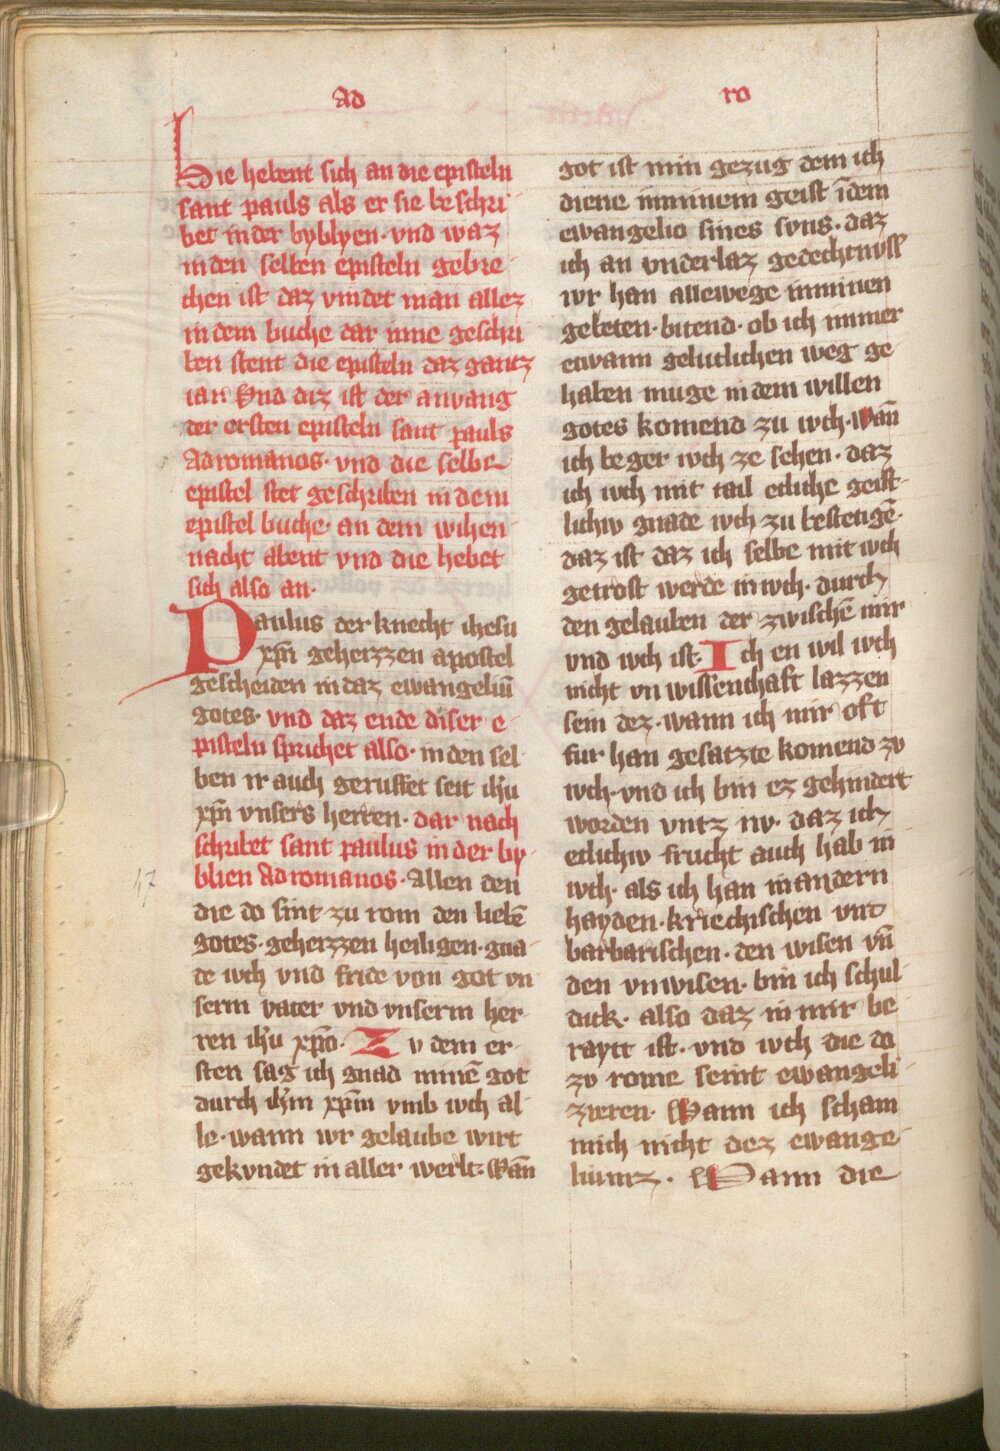 ad
ro
Hie hebent sich an die episteln
sant pauls als er sie beschri
bet in der byblyen· vnd waz
in den selben episteln gebre
chen ist daz vindet man allez
in dem buche dar inne geschri
ben stent die episteln daz gantz
iar Vnd diz ist der anvang
der ersten episteln sant pauls
Ad romanos· vnd die selbe
epistel stet geschriben in dem
epistel buche· an dem wihen
nacht abent vnd die hebet
sich also an·
Paulus der knecht ihesu
xp̄ı geheizzen apostel
gescheiden in daz ewangeliū
gotes· vnd daz ende diser e
pisteln sprichet also· in den sel
ben ir auch gerufft seit ih̄u
xp̄ı vnsers herren· dar nach
schribet sant paulus in der by
blien Ad romanos· Allen den
die do sint zu rom den liebē
gotes· geheizzen heiligen· gna
de iwch vnd fride von got vn
serm vater vnd vnserm her
ren ih̄u xp̄o· Zv dem er
sten sag ich gnad minē got
durch ih̄m xp̄m vmb iwch al
le· wann iwr gelaube wirt
gekvndet in aller werlt· Wān
47
got ist min gezug dem ich
diene in minem geist īdem
ewangelio sines svns· daz
ich an vnderlaz gedechtnvss
iwr han allewege in minen
gebeten· bitend· ob ich immer
etwann gelutlichen weg ge
haben muge in dem willen
gotes komend zu iwch· Wān
ich beger iwch ze sehen· daz
ich iwch mit tail etliche geist
lichiv gnade iwch zu bestetigē·
daz ist daz ich selbe mit iwch
getrost werde in iwch· durch
den gelauben der zwischē mir
vnd iwch ist· Ich en wil iwch
nicht vn wissenthaft lazzen
sein dez· wann ich mir oft
fur han gesatzte komend zv
iwch· vnd ich bin ez gehindert
worden vntz nv· daz ich
etlichiv frucht auch hab in
iwch· als ich han in andern
hayden· kriechischen vnd
barbarischen· den wisen vn̄
den vnwisen· bin ich schul
dick· also daz in mir be
raytt ist· vnd iwch die do
zv rome seint ewangeli
zieren· Wann ich scham
mich nicht dez ewange
liumz· Wann die